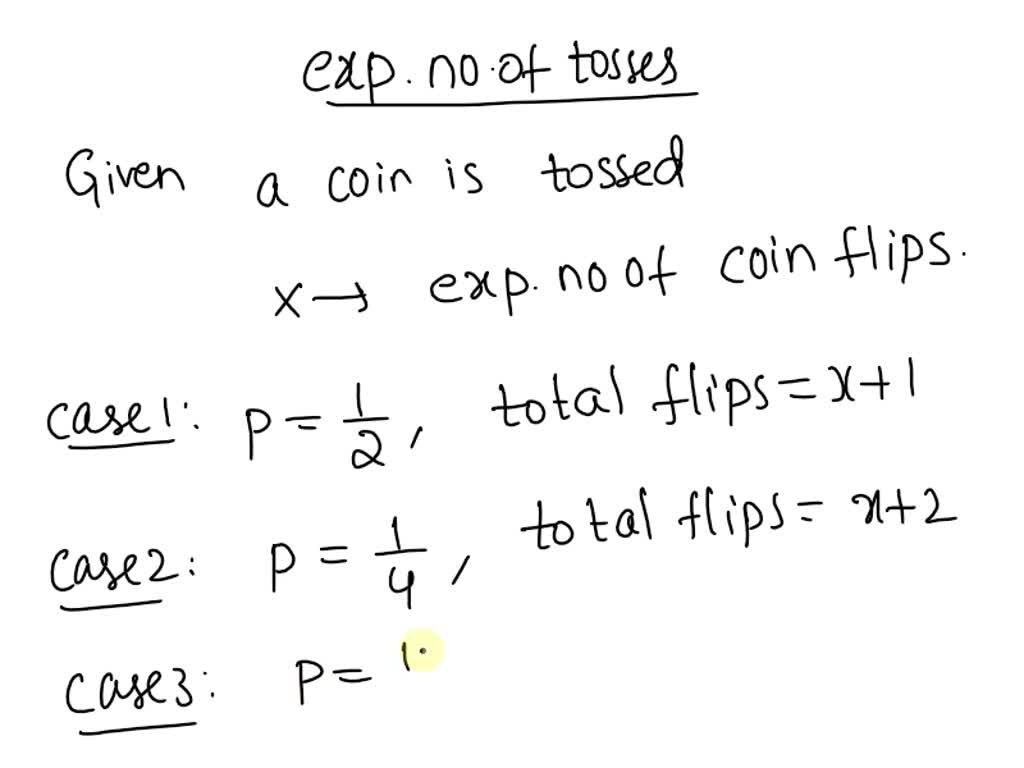 exp. no. of tosses
Given a coin is tossed
x → exp. no of coin flips.
case1: p = 1/2, total flips = x+1
case2: p = 1/4, total flips = x+2
case3: p = 1